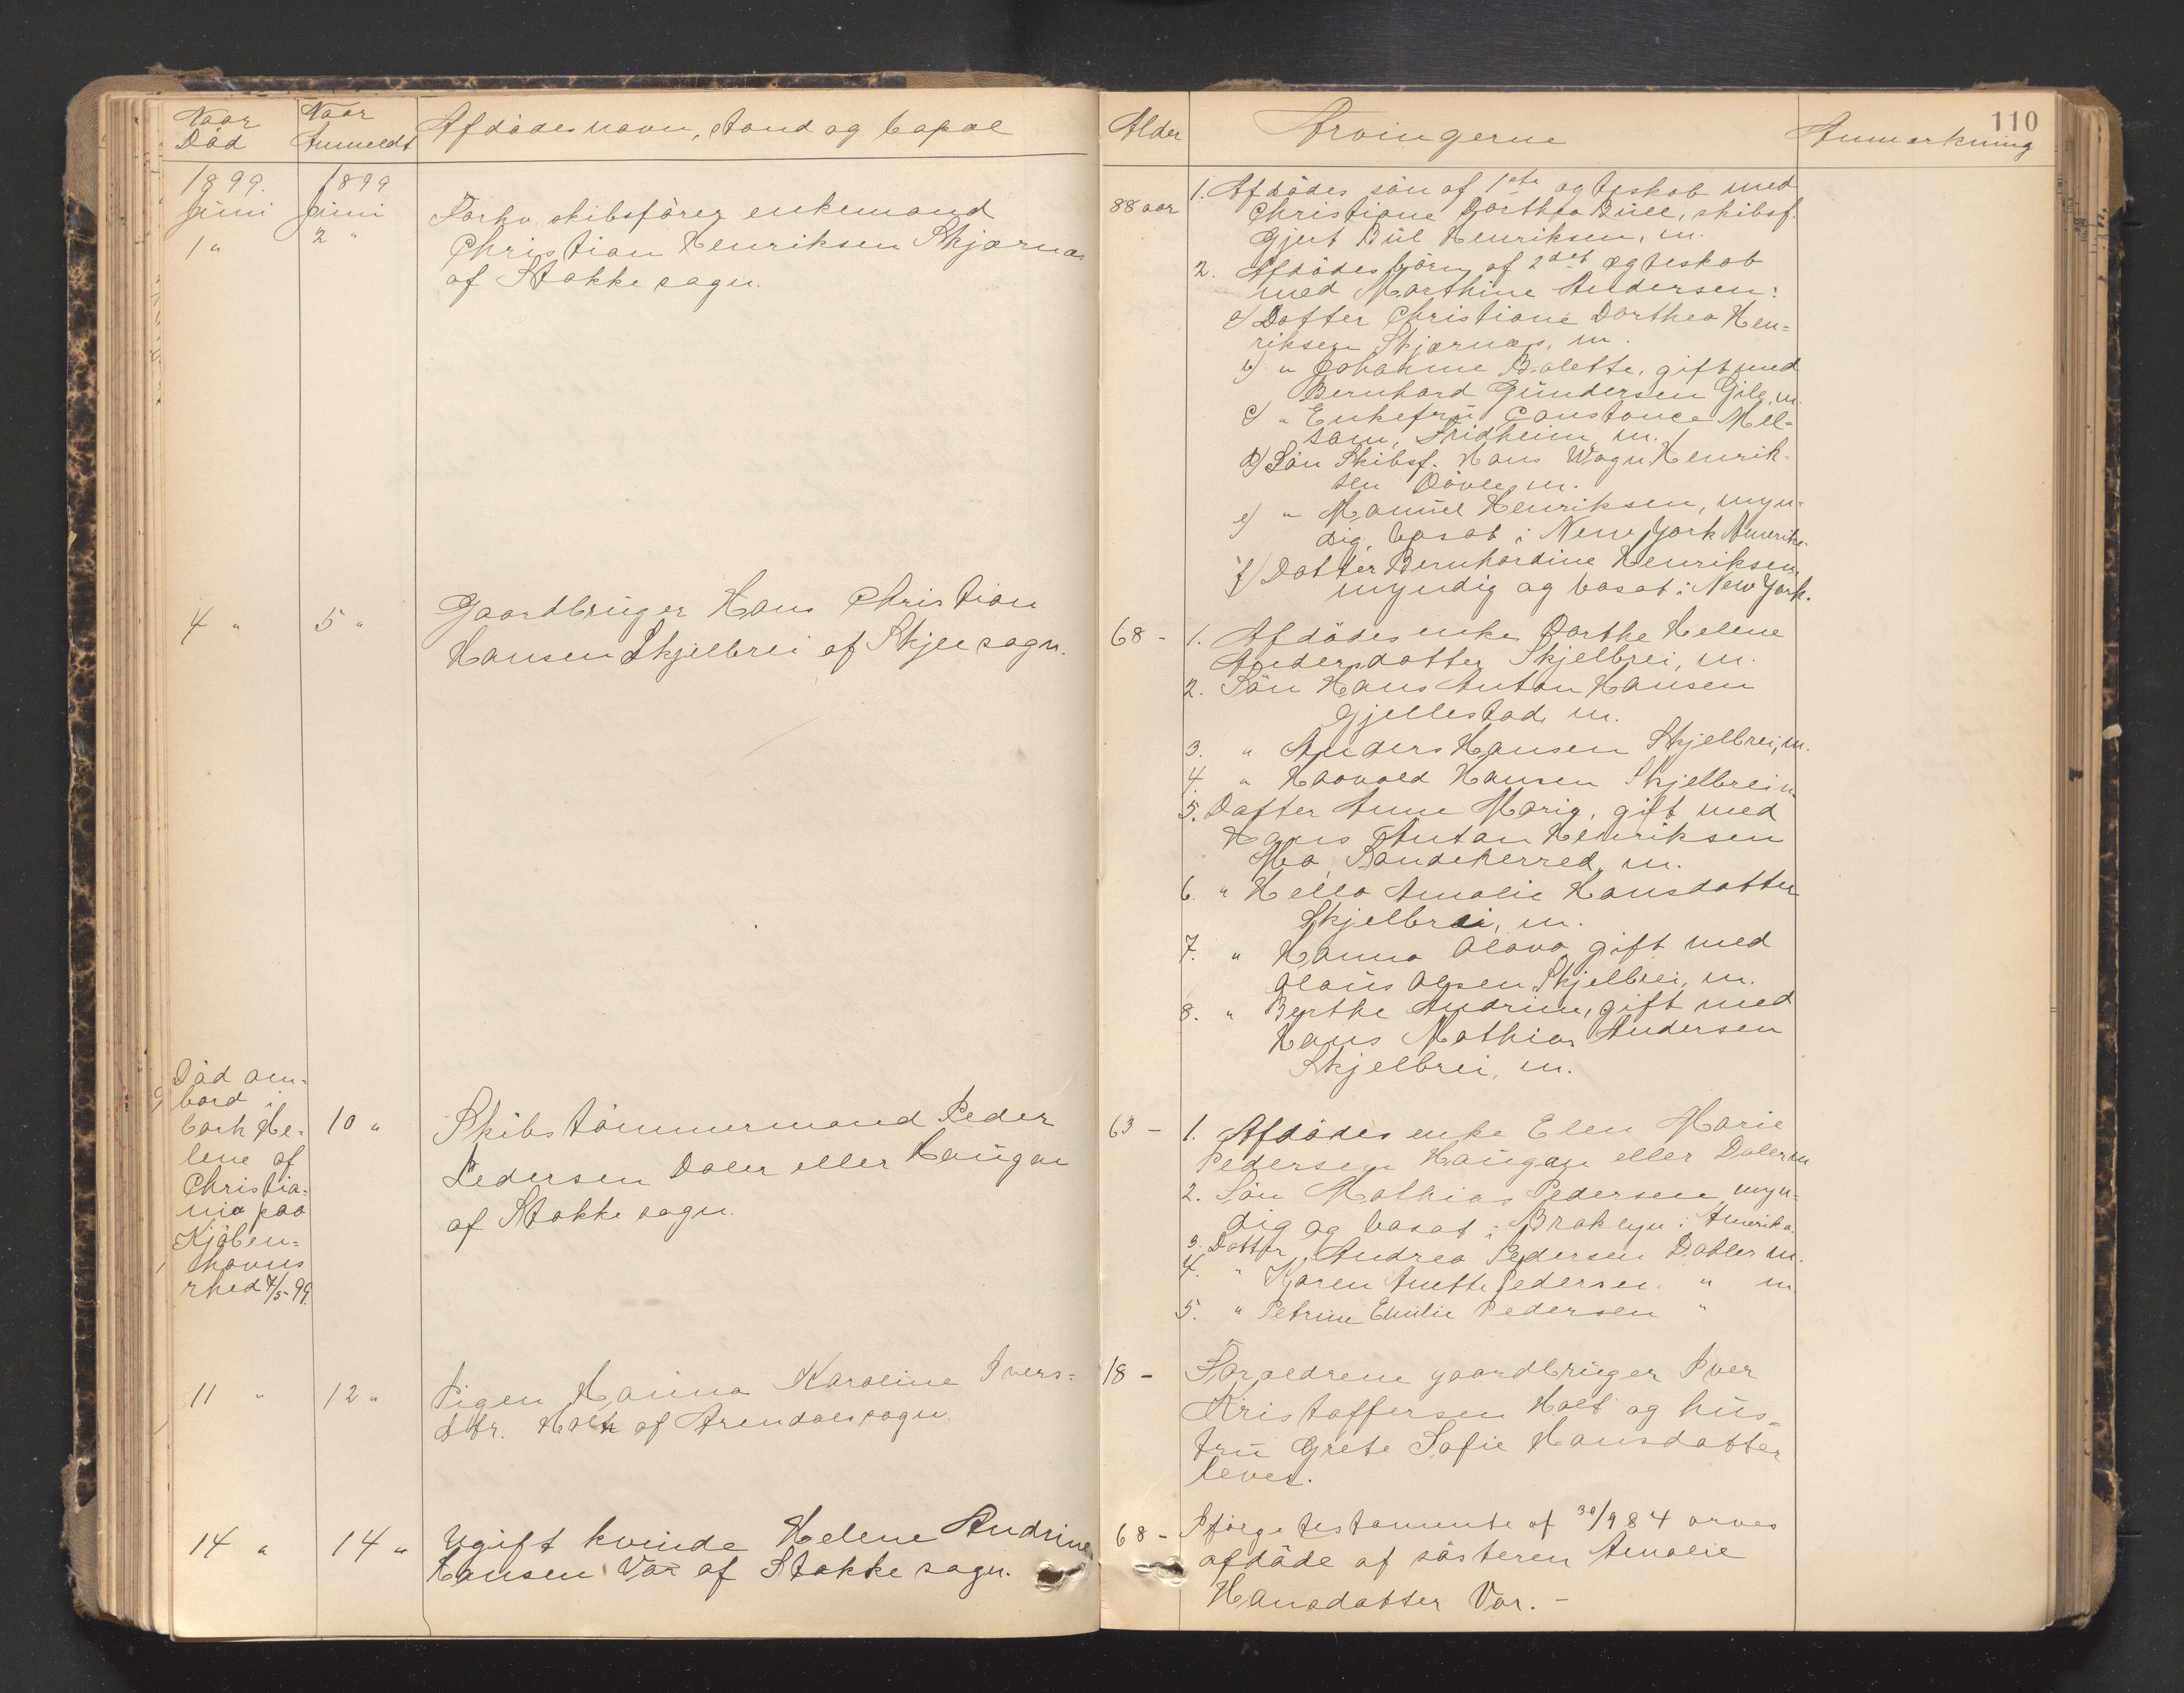 Naar Død
Naar Anmeldt
Afdødes navn, stand og bopæl
1899. 1899
Juni Juni
1 " 2 "
Forhv. skibsfører enkemand
Christian Henriksen Skjærnæs
af Stokke sogn.
4 " 5 "
Gaardbruger Hans Christian
Hansen Skjelbrei af Skjee sogn.
Død om-
bord i
bark He-
lene af
Christia-
nia paa
Kjøben-
havns
rhed 7/5-99.
10 "
Skibstømmermand Peder
Pedersen Daler eller Haugan
af Stokke sogn.
11 " 12 "
Pigen Hanna Karoline Ivers-
dtr. Holt af Arendals sogn.
14 " 14 "
Ugift kvinde Helene Andrine
Hansen Vær af Stokke sogn.
110
Alder
Arvingerne
Anmærkning
88 aar
1. Afdødes søn af 1ste ægteskab med
Christiane Dorthea Büll, skibsf.
Gjert Bül Henriksen, m.
2. Afdødes børn af 2det ægteskab
med Marthine Andersen:
a) Datter Christiane Dorthea Hen-
riksen Skjærnæs, m.
b) " Johanne Bolette, gift med
Bernhard Gundersen Gile, m.
c) " Enkefru Constance Mel-
som, Fridheim, m.
d) Søn Skibsf. Hans Wogn Henrik-
sen Døvle, m.
e) " Manuel Henriksen, myn-
dig, bosat i New York Amerika.
f) Datter Bernhardine Henriksen,
myndig og bosat i New York.
68 - 1. Afdødes enke Dorthe Helene
Andersdatter Skjelbrei, m.
2. Søn Hans Anton Hansen
Gjellestad, m.
3. " Anders Hansen Skjelbrei, m.
4. " Haavald Hansen Skjelbrei m.
5. Datter Anne Marie, gift med
Hans Anton Henriksen
Mo, Sandeherred, m.
6. " Hella Amalie Hansdatter
Skjelbrei, m.
7. " Hanna Olava, gift med
Olaus Olsen Skjelbrei, m.
8. " Berthe Andrine, gift med
Hans Mathias Andersen
Skjelbrei, m.
63 - 1. Afdødes enke Elen Marie
Pedersen Haugan eller Daler m
2. Søn Mathias Pedersen, myn-
dig og bosat i Broklyn i Amerika.
3. Datter Andrea Pedersen Dahler m.
4. " Karen Anette Pedersen " m.
5. " Petrine Emilie Pedersen "
18 - Forældrene gaardbruger Iver
Kristoffersen Holt og hus-
tru Grete Sofie Hansdatter
lever.
68 - Ifølge testamente af 30/9 84 arves
afdøde af søsteren Amalie
Hansdatter Vær. -